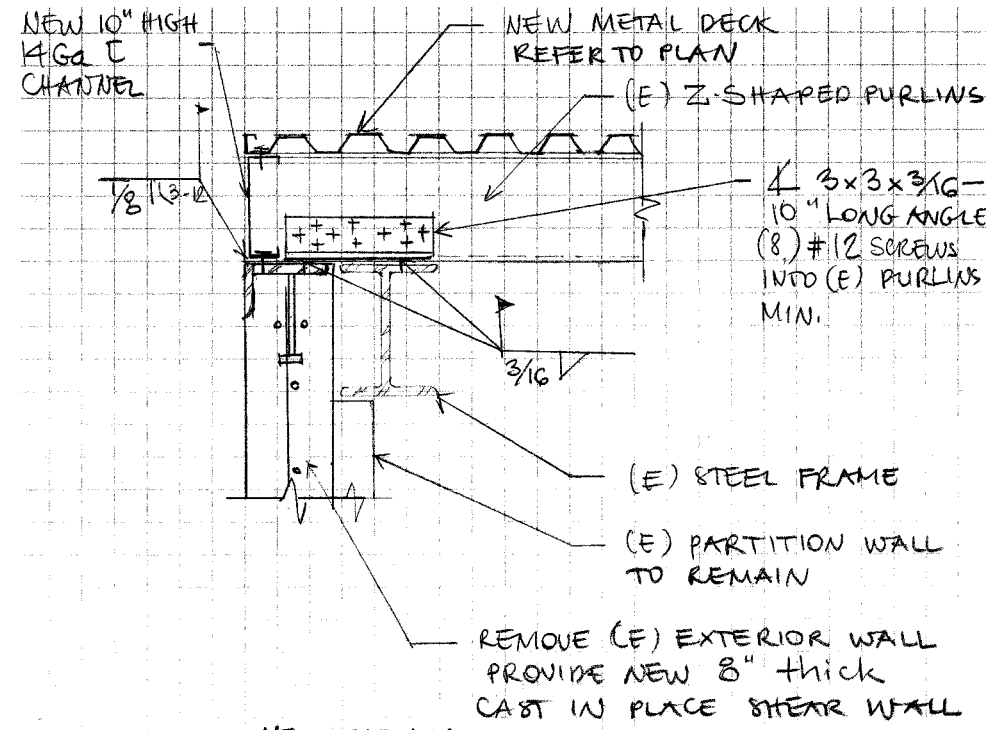 NEW 10" HIGH
14Ga [
CHANNEL
NEW METAL DECK
REFER TO PLAN
(E) Z-SHAPED PURLINS
1/8 3-12
∠ 3x3x3/16-
10" LONG ANGLE
(8) #12 SCREWS
INTO (E) PURLINS
MIN.
3/16
(E) STEEL FRAME
(E) PARTITION WALL
TO REMAIN
REMOVE (E) EXTERIOR WALL
PROVIDE NEW 8" thick
CAST IN PLACE SHEAR WALL